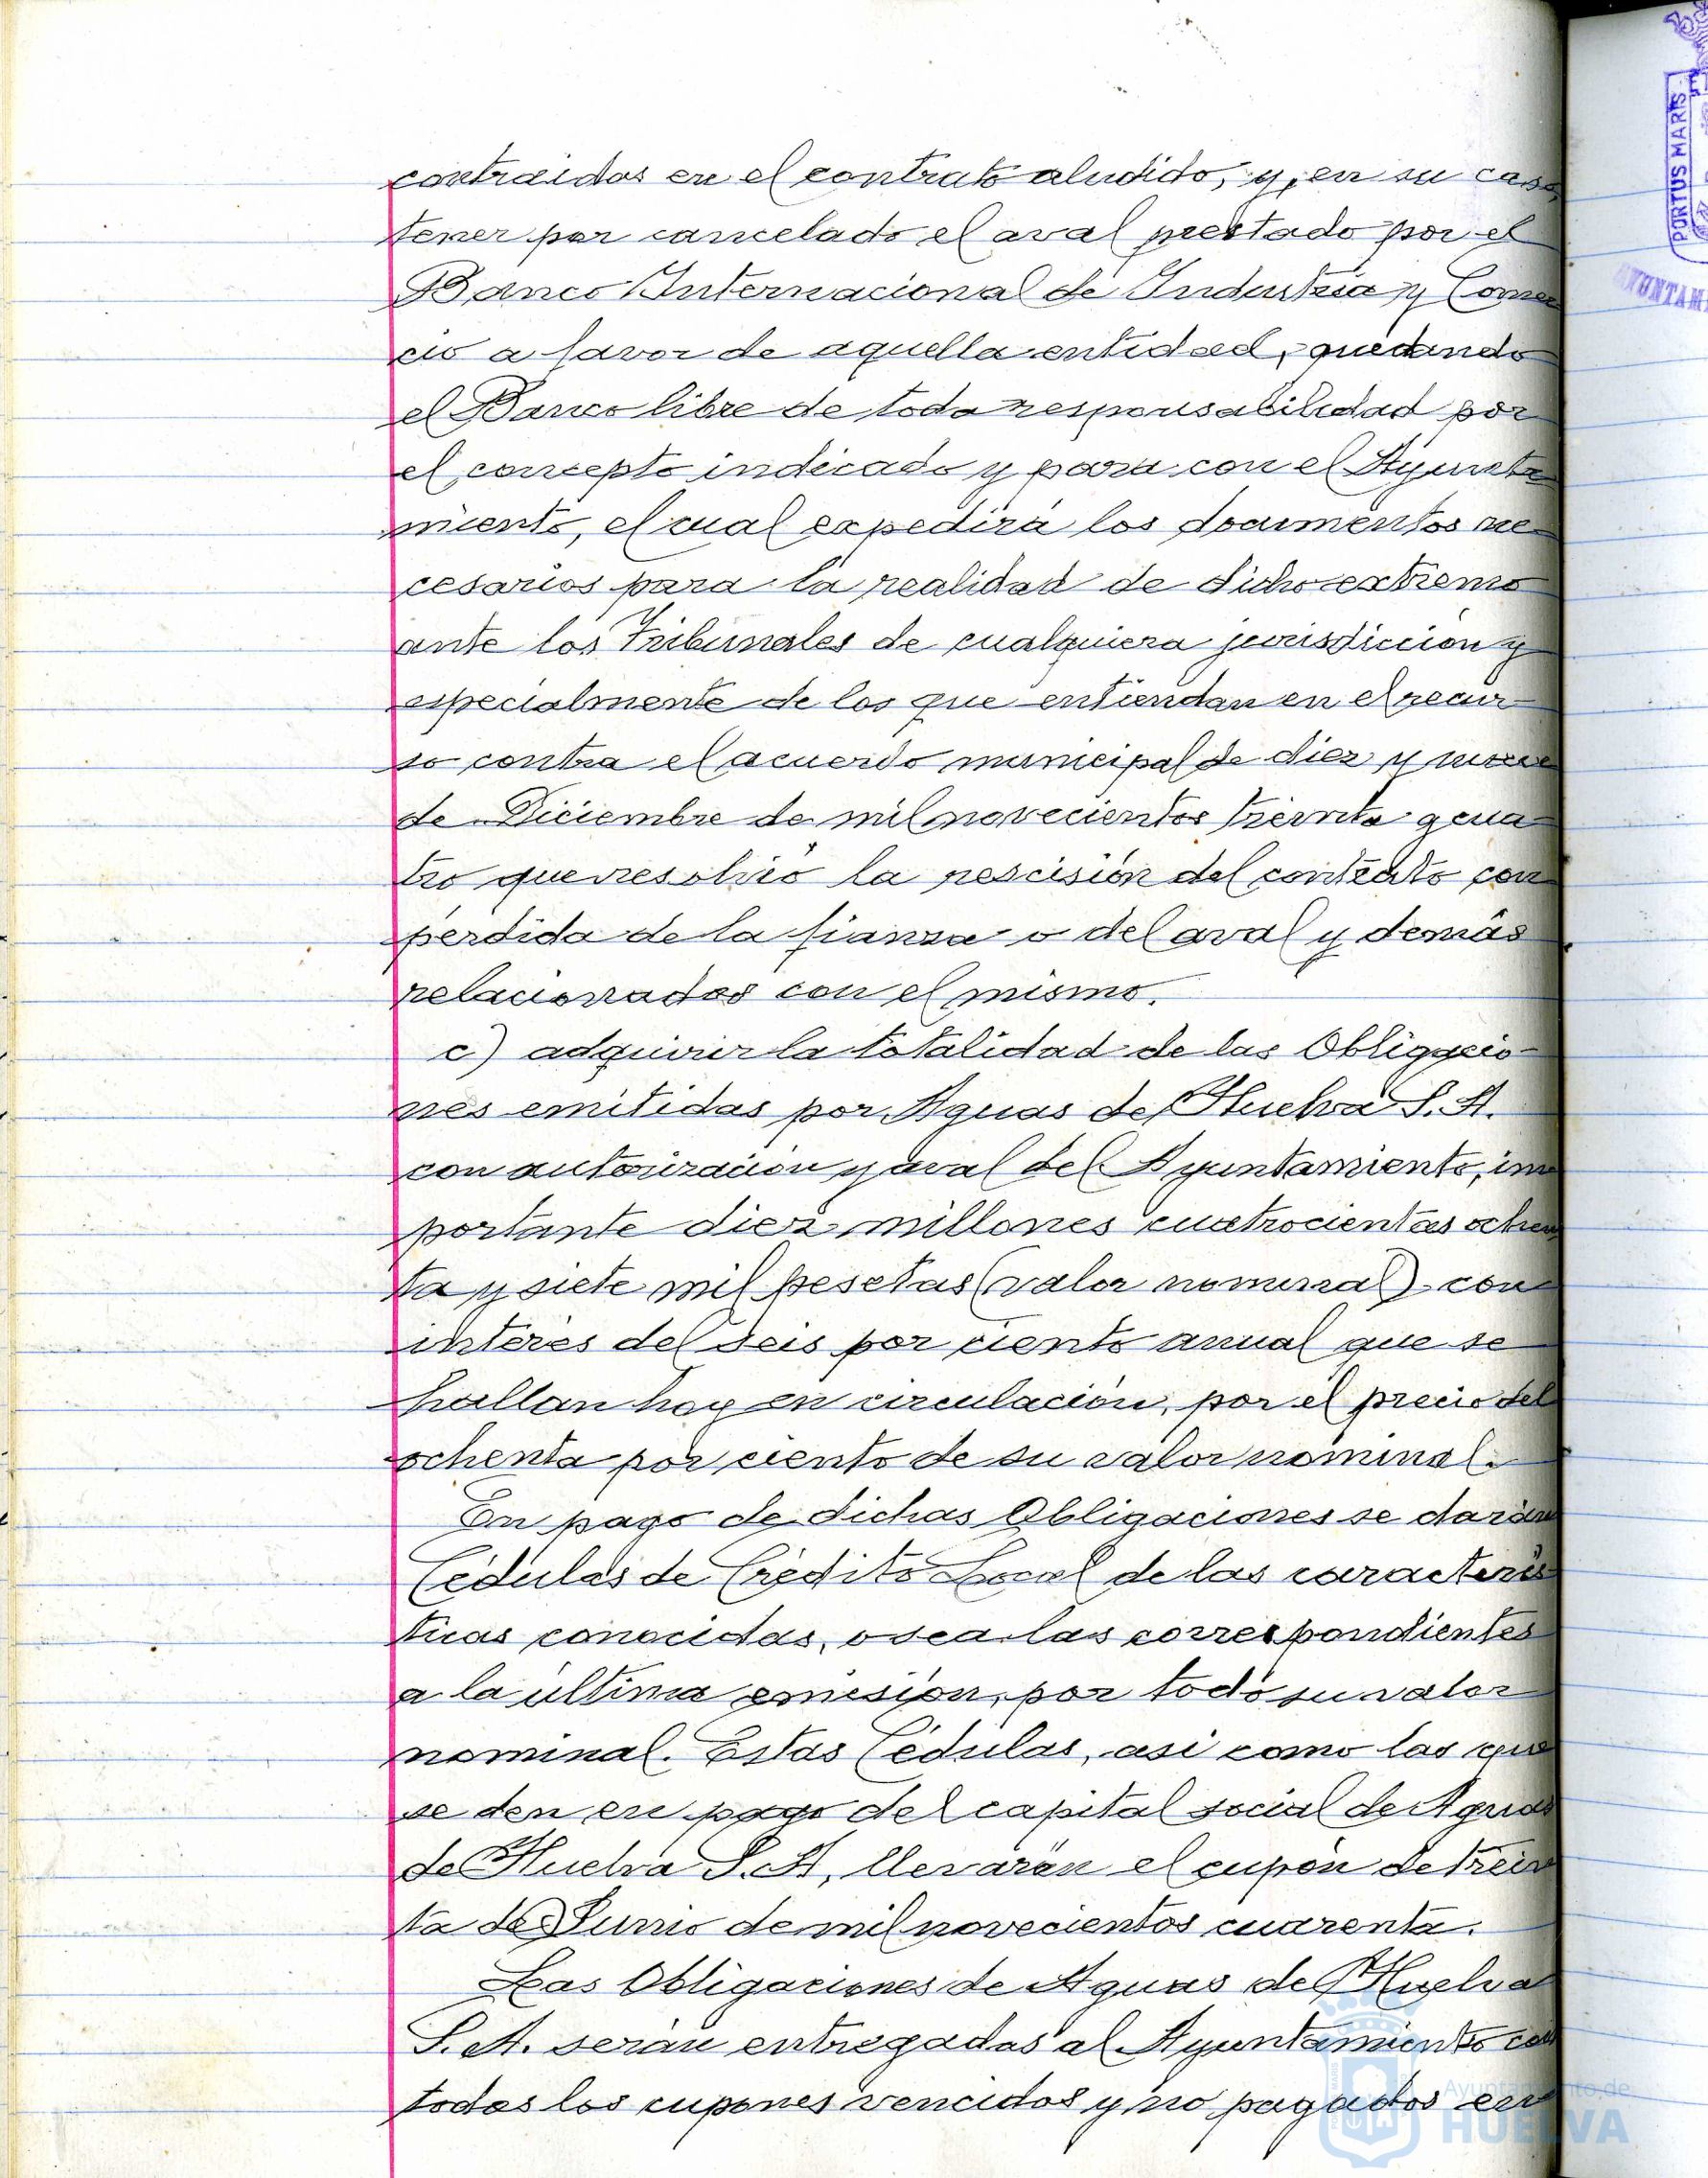 contraidos en el contrato aludido, y, en su caso,
tener por cancelado el aval prestado por el
Banco Internacional de Industria y Comer
cio a favor de aquella entidad, quedando
el Banco libre de toda responsabilidad por
el concepto indicado y para con el Ayunta
miento, el cual expedirá los documentos ne-
cesarios para la realidad de dicho extremo
ante los Tribunales de cualquiera jurisdicción y
especialmente de los que entiendan en el recur-
so contra el acuerdo municipal de diez y nueve
de Diciembre de mil novecientos treinta y cua-
tro que resolvió la rescisión del contrato con
pérdida de la fianza o del aval y demás
relacionados con el mismo.
c) adquirir la totalidad de las Obligacio-
nes emitidas por Aguas de Huelva S. A.
con autorización y aval del Ayuntamiento, im
portante diez millones cuatrocientas ochen
ta y siete mil pesetas (valor nominal) con
interés del seis por ciento anual que se
hallan hoy en circulación, por el precio del
ochenta por ciento de su valor nominal.
En pago de dichas Obligaciones se darán
Cédulas de Crédito Local de las caracterís
ticas conocidas, o sea las correspondientes
a la última emisión, por todo su valor
nominal. Estas Cédulas, asi como las que
se den en pago del capital social de Aguas
de Huelva S. A, llevarán el cupón de trein
ta de Junio de mil novecientos cuarenta.
Las Obligaciones de Aguas de Huelva
S. A. serán entregadas al Ayuntamiento con
todos los cupones vencidos y no pagados en
PORTUS MARIS
Ayuntamiento de
HUELVA